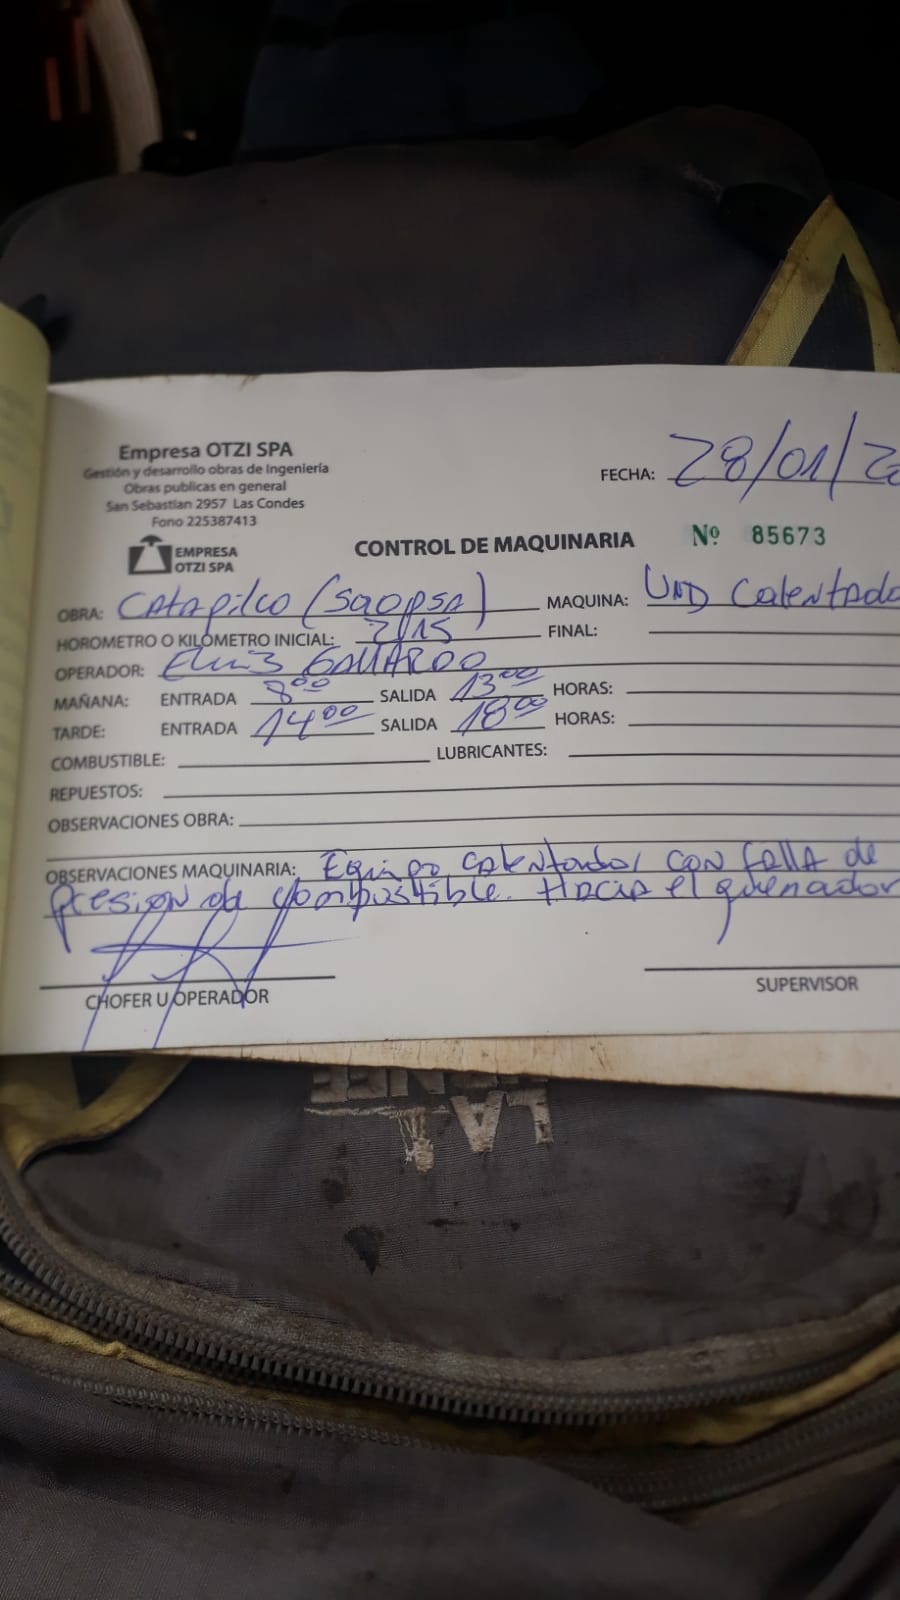 Empresa OTZI SPA
Gestión y desarrollo obras de Ingeniería
Obras publicas en general
San Sebastian 2957 Las Condes
Fono 225387413
EMPRESA
OTZI SPA
FECHA: 28/01/2
CONTROL DE MAQUINARIA Nº 85673
OBRA: CATAPILCO (SACOPSA) MAQUINA: UND Calentado
HOROMETRO O KILÓMETRO INICIAL: 2115 FINAL:
OPERADOR: GALLARDO
MAÑANA: ENTRADA 8:00 SALIDA 13:00 HORAS:
TARDE: ENTRADA 14:00 SALIDA 18:00 HORAS:
COMBUSTIBLE: LUBRICANTES:
REPUESTOS:
OBSERVACIONES OBRA:
OBSERVACIONES MAQUINARIA: Equipo calentador con falla de
presion de combustible. Hacia el quemador
CHOFER U OPERADOR SUPERVISOR
LA